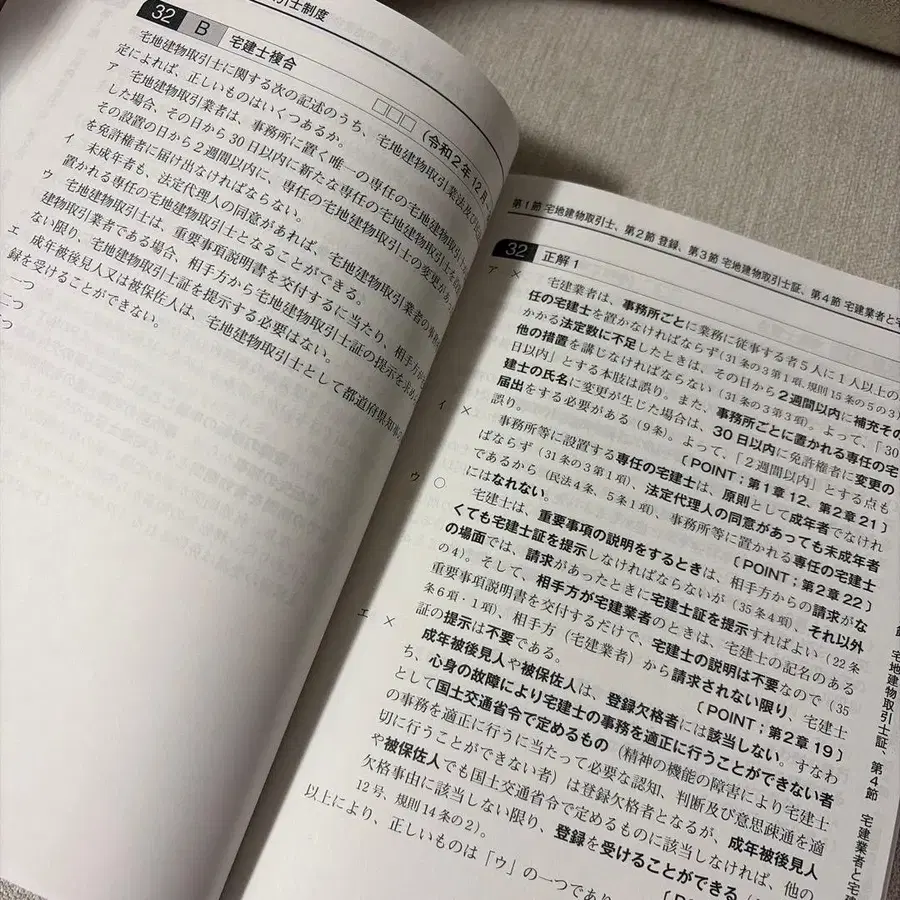 引士制度
32 B 宅建士複合
□□□ (令和2年12月
宅地建物取引士に関する次の記述のうち、宅地建物取引業法及び民
定によれば、正しいものはいくつあるか。
ア 宅地建物取引業者は、事務所に置く唯一の専任の宅地建物取引士
した場合、その日から30日以内に新たな専任の宅地建物取引士を
その設置の日から2週間以内に、専任の宅地建物取引士の変更があ
を免許権者に届け出なければならない。
イ 未成年者も、法定代理人の同意があれば、宅地建物取引業者の事務
置かれる専任の宅地建物取引士となることができる。
ウ 宅地建物取引士は、重要事項説明書を交付するに当たり、相手方が
建物取引業者である場合、相手方から宅地建物取引士証の提示を求め
ない限り、宅地建物取引士証を提示する必要はない。
エ 成年被後見人又は被保佐人は、宅地建物取引士として都道府県知事の
録を受けることができない。
一つ
二つ
つ
第1節 宅地建物取引士、第2節 登録、第3節 宅地建物取引士証、第4節 宅建業者と宅
32 正解 1
ア × 宅建業者は、事務所ごとに業務に従事する者5人に1人以上の
任の宅建士を置かなければならず(31条の3第1項、規則15条の5の3)
かかる法定数に不足したときは、その日から2週間以内に補充その
他の措置を講じなければならない(31条の3第3項)。よって、「30
日以内」とする本肢は誤り。また、事務所ごとに置かれる専任の宅
建士の氏名に変更が生じた場合は、30日以内に免許権者に変更の
届出をする必要がある(9条)。よって、「2週間以内」とする点も
誤り。 〔POINT;第1章12、第2章21〕
イ × 事務所等に設置する専任の宅建士は、原則として成年者でなけれ
ばならず(31条の3第1項)、法定代理人の同意があっても未成年者
であるから(民法4条、5条1項)、事務所等に置かれる専任の宅建士
にはなれない。 〔POINT;第2章22〕
ウ ○ 宅建士は、重要事項の説明をするときは、相手方からの請求がな
くても宅建士証を提示しなければならないが(35条4項)、それ以外
の場面では、請求があったときに宅建士証を提示すればよい(22条
の4)。そして、相手方が宅建業者のときは、宅建士の記名のある
重要事項説明書を交付するだけで、宅建士の説明は不要なので(35
条6項・1項)、相手方(宅建業者)から請求されない限り、宅建士
証の提示は不要である。 〔POINT;第2章19〕
エ × 成年被後見人や被保佐人は、登録欠格者には該当しない。すなわ
ち、心身の故障により宅建士の事務を適正に行うことができない者
として国土交通省令で定めるもの(精神の機能の障害により宅建士
の事務を適正に行うに当たって必要な認知、判断及び意思疎通を適
切に行うことができない者)は登録欠格者となるが、成年被後見人
や被保佐人でも国土交通省令で定めるものに該当しなければ、他の
欠格事由に該当しない限り、登録を受けることができる
12号、規則14条の2)。
以上により、正しいものは「ウ」の一つであり
宅地建物取引士証、第4節 宅建業者と宅